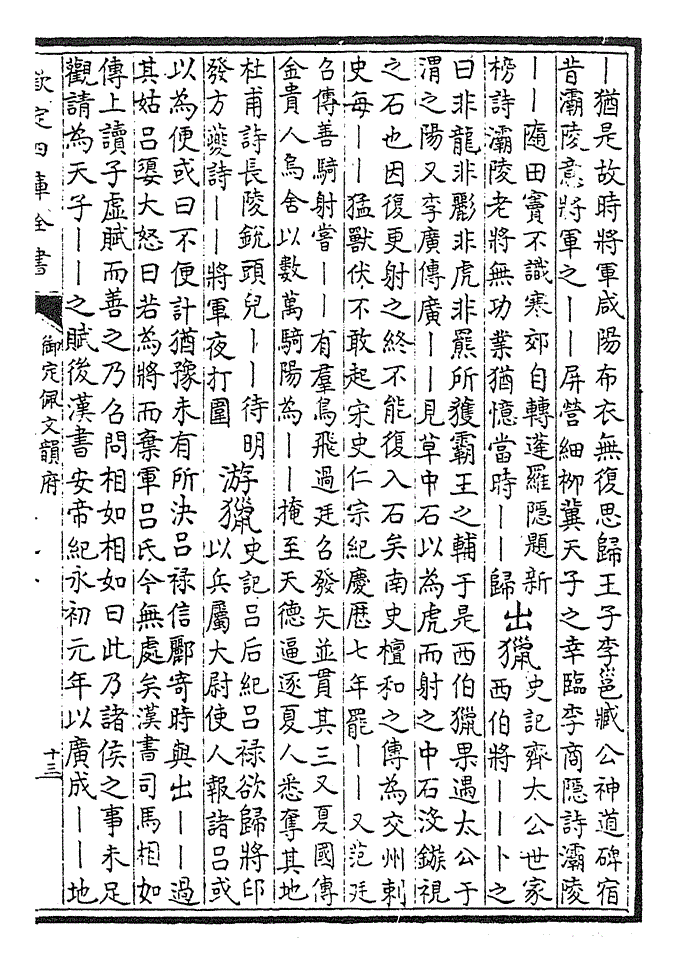 〡猶是故時將軍咸陽布衣無復思歸王子李邕臧公神道碑宿
昔灞陵意將軍之〡〡屏營細柳冀天子之幸臨李商隱詩灞陵
〡〡隨田竇不識寒郊自轉蓬羅隱題新
榜詩灞陵老將無功業猶憶當時〡〡歸
出獵
史記齊太公世家
西伯將〡〡卜之
曰非龍非彲非虎非羆所獲霸王之輔于是西伯獵果遇太公于
渭之陽又李廣傳廣〡〡見草中石以為虎而射之中石没鏃視
之石也因復更射之終不能復入石矣南史檀和之傳為交州刺
史每〡〡猛獸伏不敢起宋史仁宗紀慶歴七年罷〡〡又范廷
召傳善騎射嘗〡〡有羣鳥飛過廷召發矢並貫其三又夏國傳
金貴人烏舍以數萬騎陽為〡〡掩至天德逼逐夏人悉奪其地
杜甫詩長陵銳頭兒〡〡待明
發方夔詩〡〡將軍夜打圍
游獵
史記吕后紀吕禄欲歸將印
以兵屬大尉使人報諸吕或
以為便或曰不便計猶豫未有所決吕禄信酈寄時與出〡〡過
其姑吕嬃大怒曰若為將而棄軍吕氏今無處矣漢書司馬相如
傳上讀子虛賦而善之乃召問相如相如曰此乃諸侯之事未足
觀請為天子〡〡之賦後漢書安帝紀永初元年以廣成〡〡地
欽定四庫全書
御定佩文韻府
十三